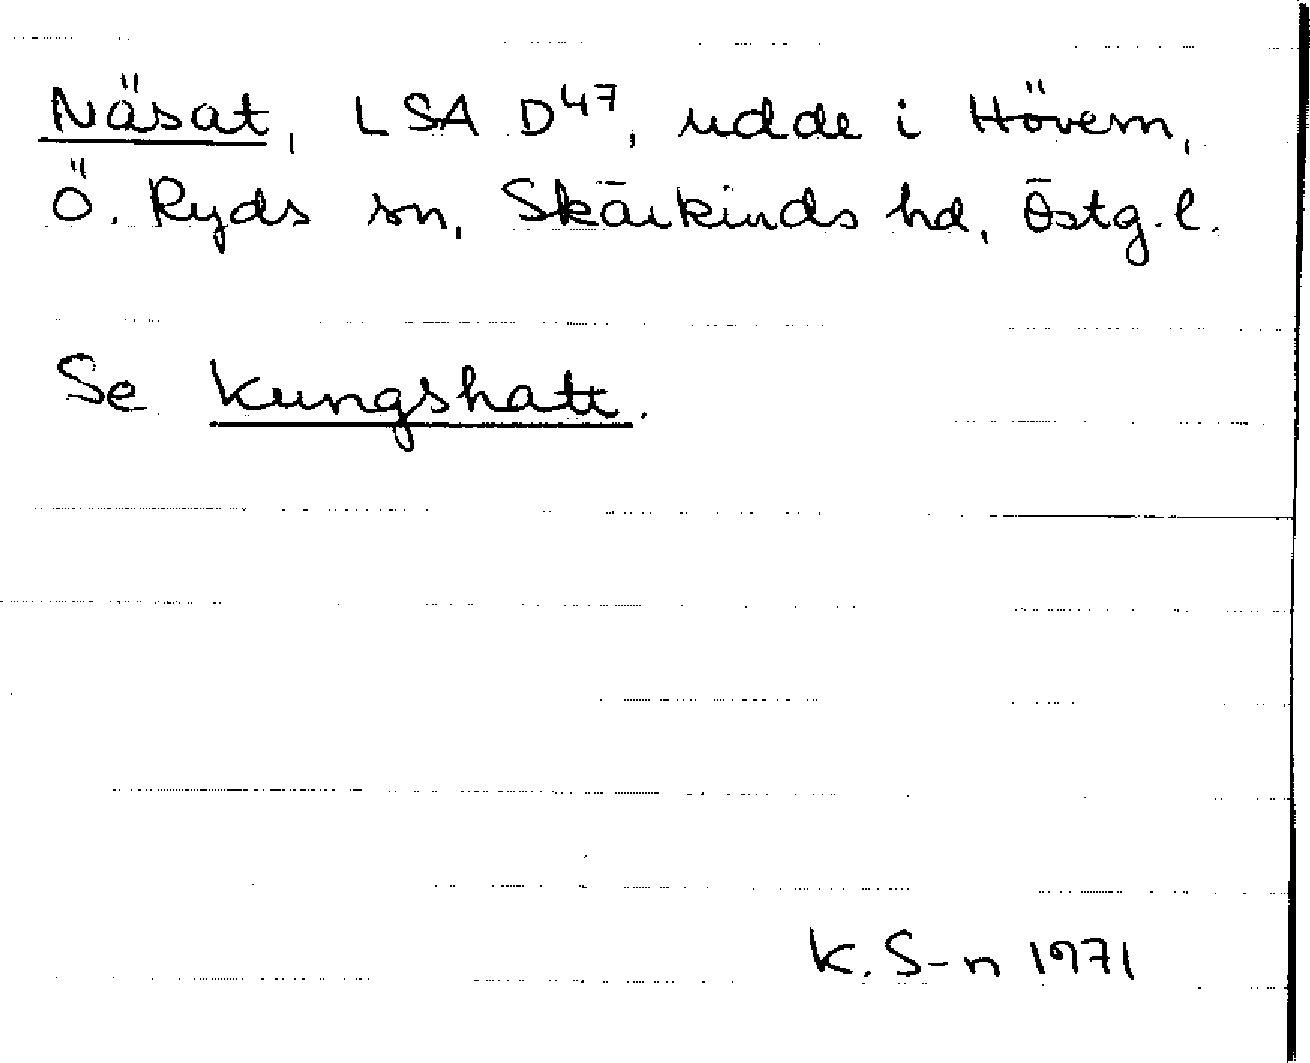 Näsat, LSA D47, udde i Hövern,
Ö. Ryds sn, Skärkinds hd, Östg.l.
Se Kungshatt.
K. S-n 1971